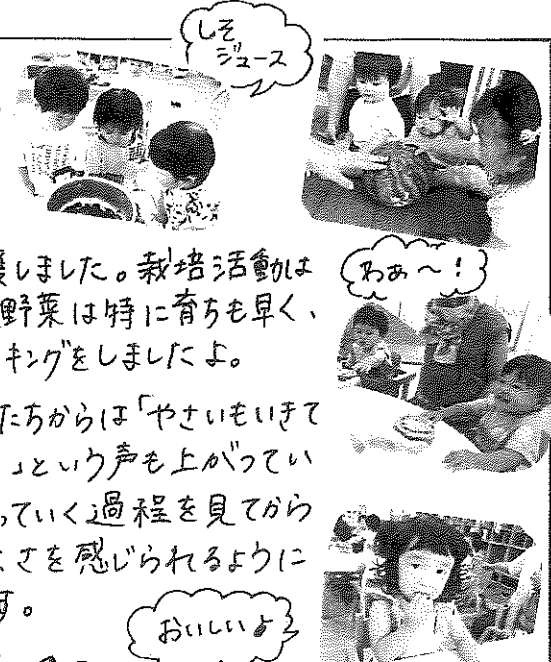 しそ
ジュース
しました。栽培活動は
野菜は特に育ちも早く、
キングをしましたよ。
わぁ～！
たちからは「やさいもいきて
」という声も上がってい
っていく過程を見てから
さを感じられるように
す。
おいしいよ